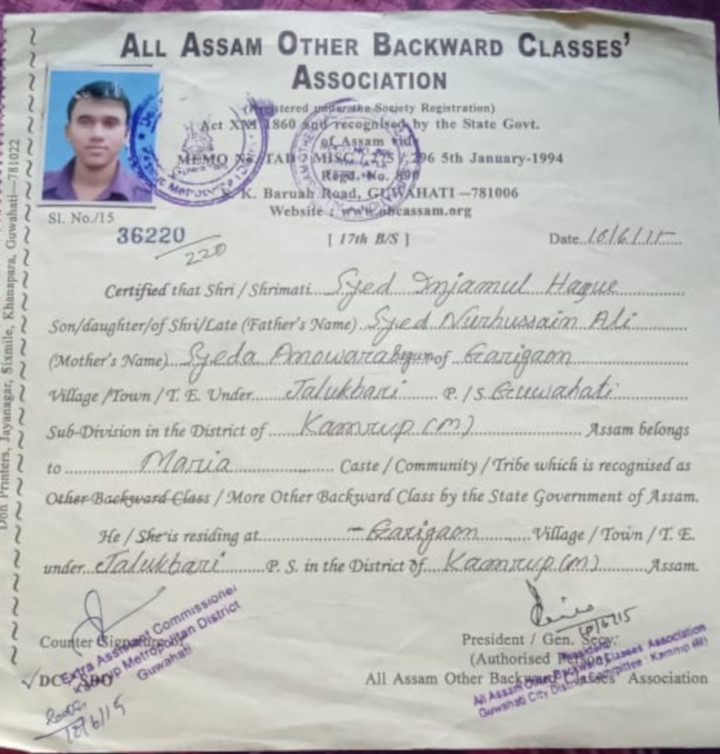 ALL ASSAM OTHER BACKWARD CLASSES'
ASSOCIATION
(Registered under the Society Registration)
Act XXI 1860 and recognised by the State Govt.
of Assam vide
MEMO No. TAD / MISC / 275 / 296 5th January-1994
Regd. No. 890
K. Baruah Road, GUWAHATI — 781006
Website : www.obcassam.org
Sl. No./15
36220
220
[ 17th B/S ]
Date 10/6/15
Certified that Shri / Shrimati Syed Injamul Haque
Son/daughter/of Shri/Late (Father's Name) Syed Nurhussain Ali
(Mother's Name) Syeda Anowara Begum of Garigaon
Village /Town / T. E. Under Jalukbari P. / S. Guwahati
Sub-Division in the District of Kamrup (M) Assam belongs
to Maria Caste / Community / Tribe which is recognised as
Other Backward Class / More Other Backward Class by the State Government of Assam.
He / She is residing at Garigaon Village / Town / T. E.
under Jalukbari P. S. in the District of Kamrup (M) Assam.
Counter Signature
Extra Assistant Commissioner
Kamrup Metropolitan District
Guwahati
DC / SDO
10/6/15
10/6/15
President / Gen. Secy.
(Authorised Person)
All Assam Other Backward Classes' Association
President
All Assam Other Backward Classes Association
Guwahati City District Committee : Kamrup (M)
Don Printers, Jayanagar, Sixmile, Khanapara, Guwahati—781022